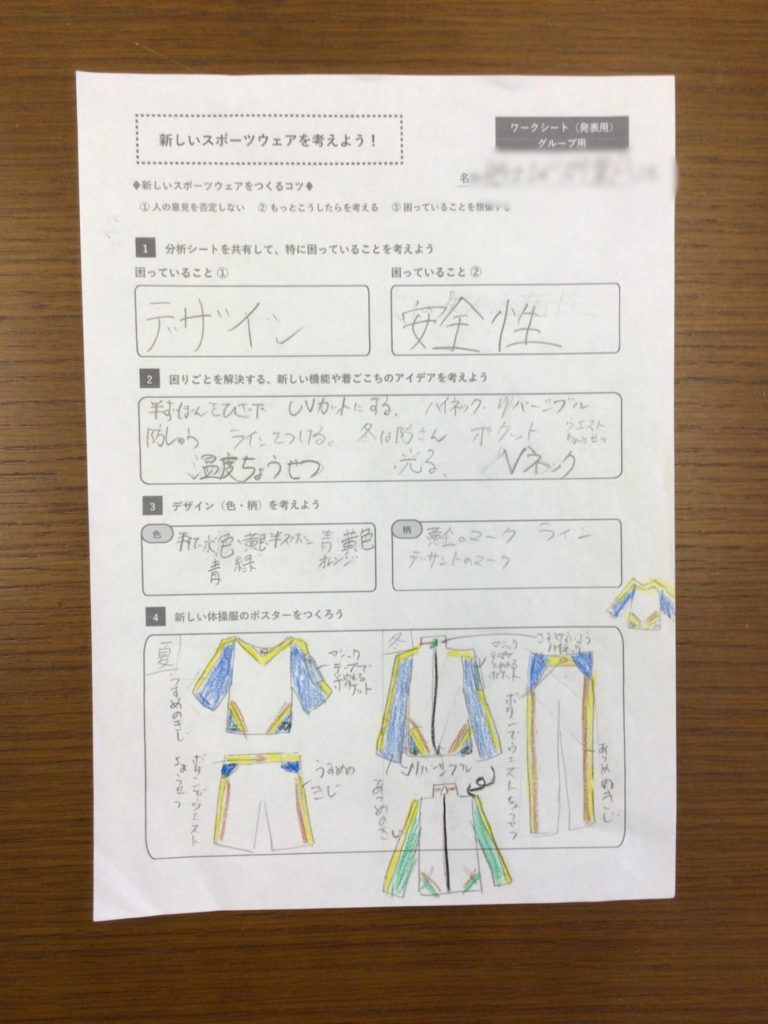 新しいスポーツウェアを考えよう！
ワークシート（発表用）
グループ用
名
◆新しいスポーツウェアをつくるコツ◆
① 人の意見を否定しない ② もっとこうしたらを考える ③ 困っていることを想像する
1 分析シートを共有して、特に困っていることを考えよう
困っていること ①
困っていること ②
デザイン
安全性
2 困りごとを解決する、新しい機能や着ごこちのアイデアを考えよう
UVカットにする、 ハイネック リバーシブル
防しゅう ラインをつける。 冬は防さん ポケット ウエストちょうせつ
温度ちょうせつ 光る、 Vネック
3 デザイン（色・柄）を考えよう
色
水色 黄色 半ズボン 青 黄色
青 緑 オレンジ
柄
黄金のマーク ライン
デサントのマーク
4 新しい体操服のポスターをつくろう
夏
うすめのきじ
マジックテープでとめるポケット
ボタンでウエストちょうせつ
うすめのきじ
冬
マジックテープでとめるポケット
ハイネック
リバーシブル
あつめのきじ
ボタンでウエストちょうせつ
あつめのきじ